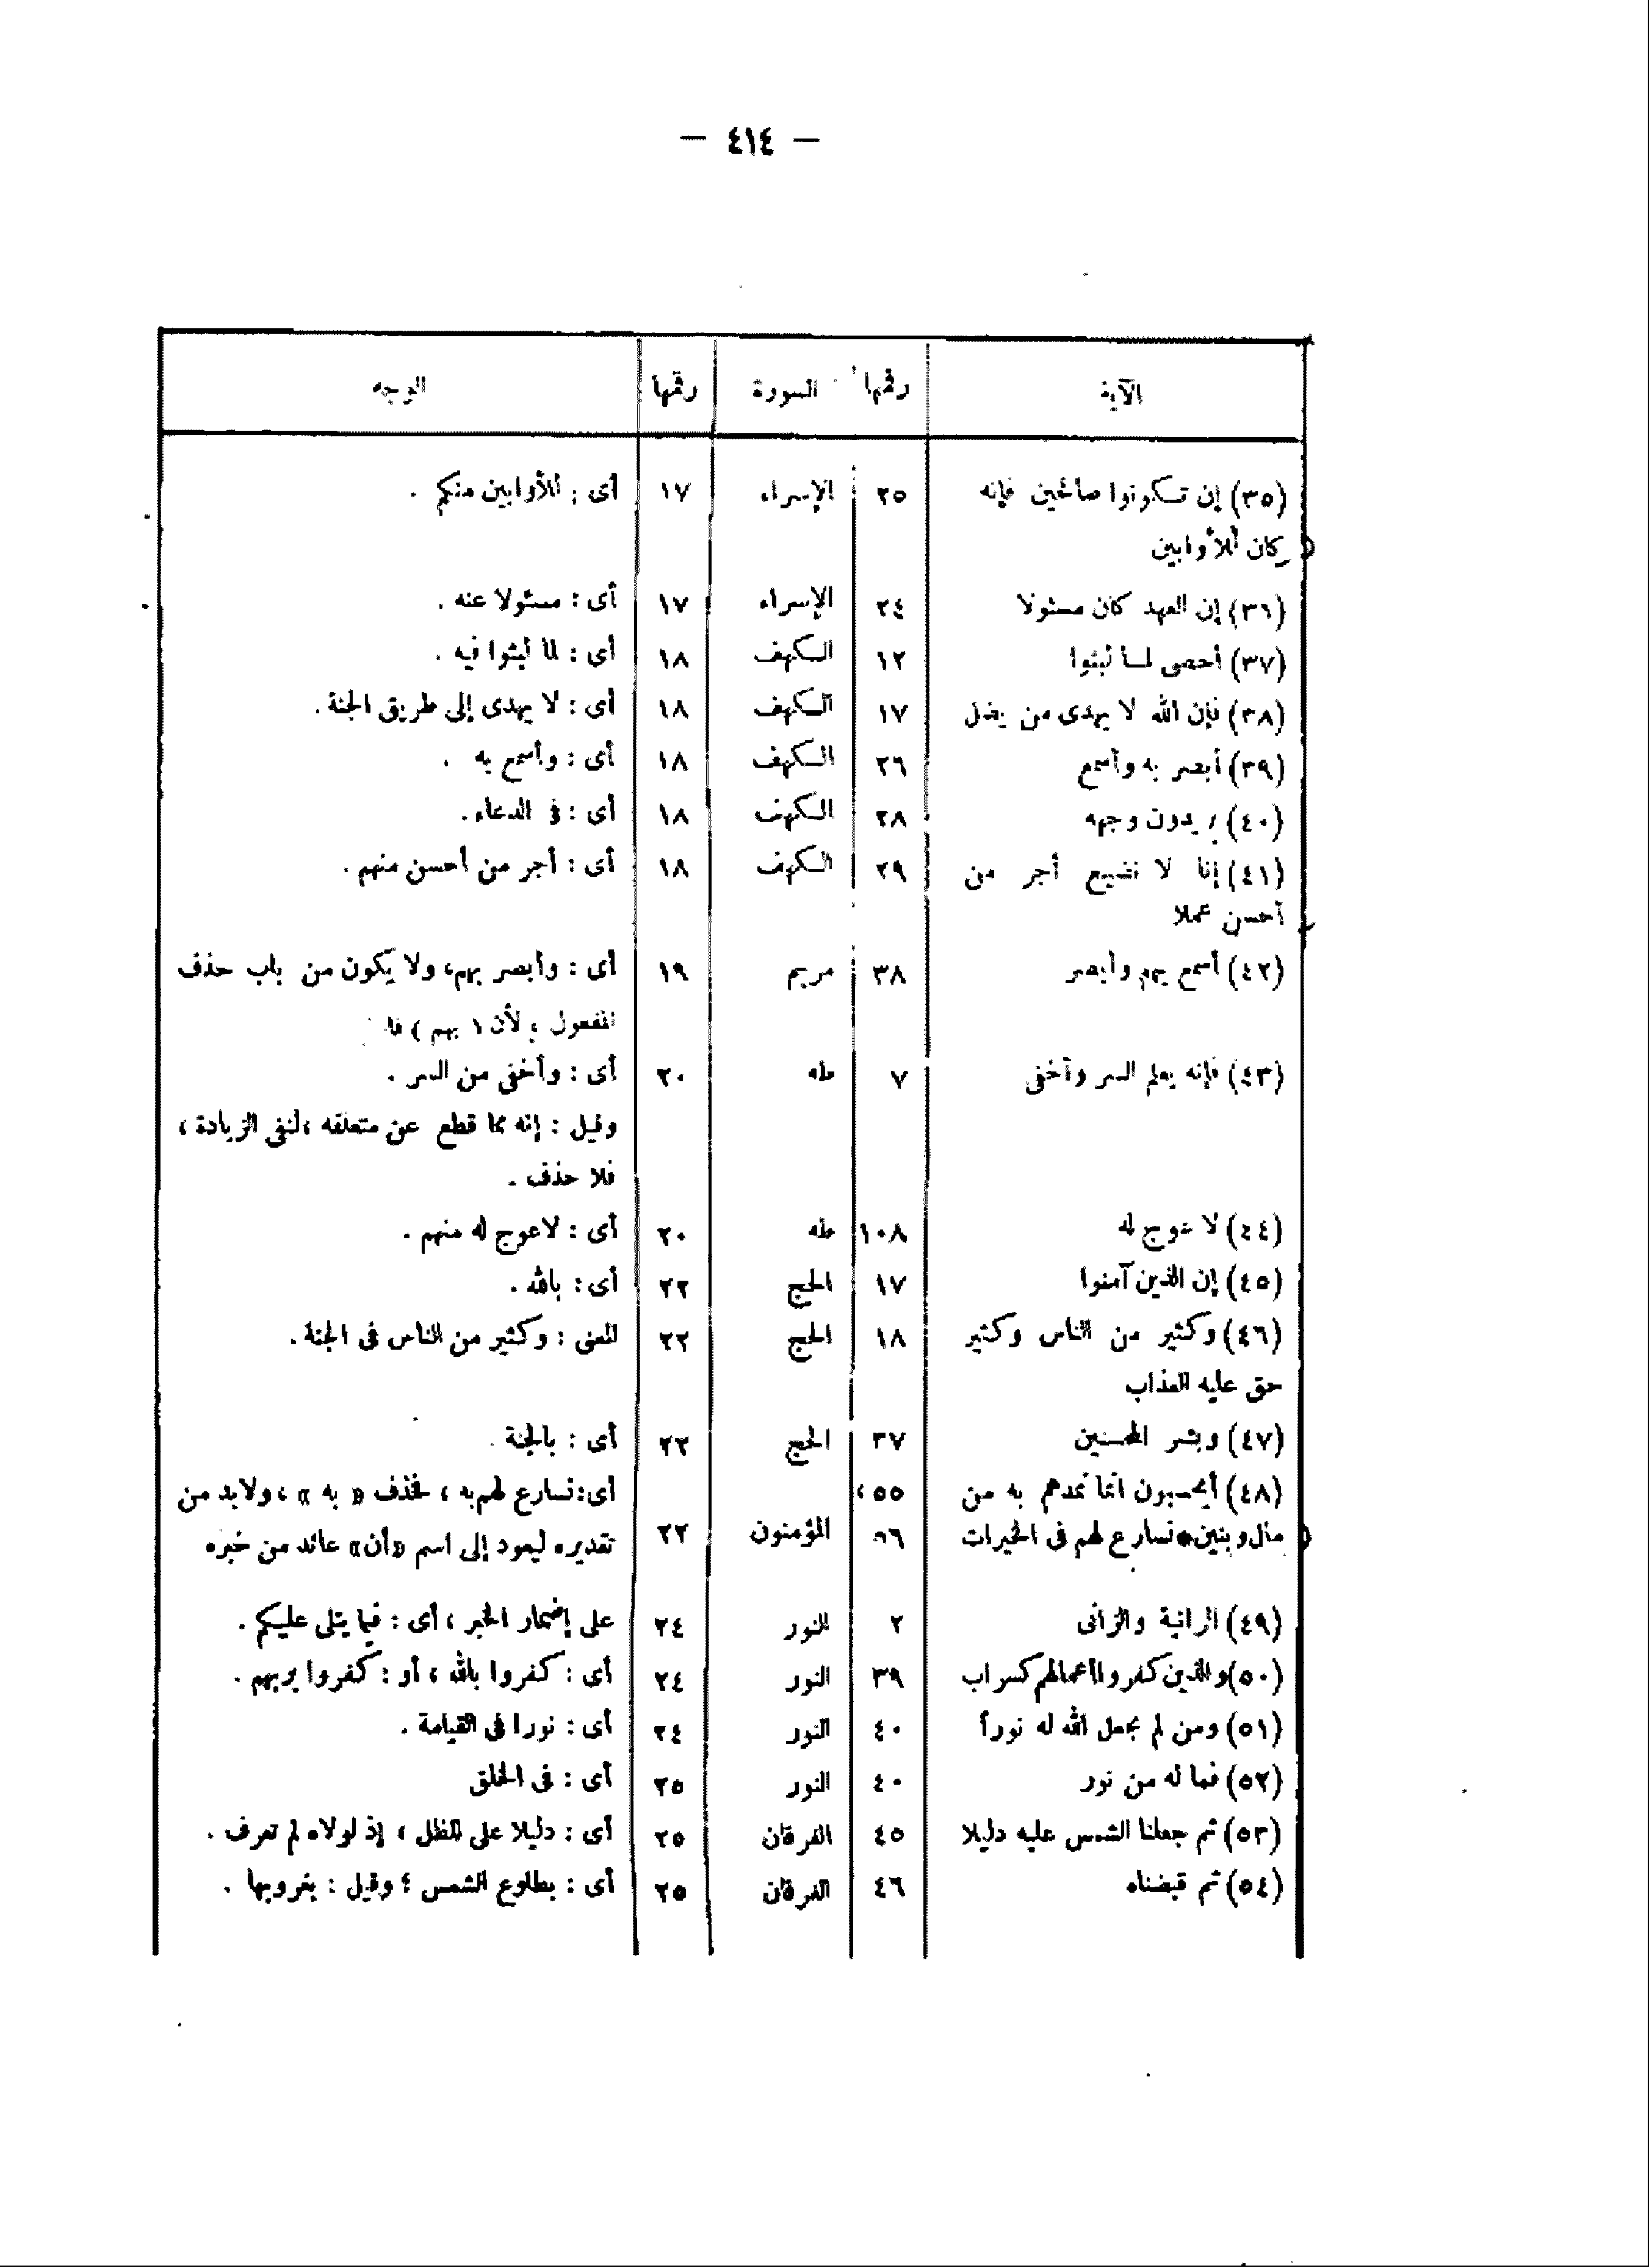 — ٤١٤ —
الآية رقمها السورة رقمها الوجه
(٣٥) إن تكونوا صالحين فإنه ٢٥ الإسراء ١٧ أى : للأوابين منكم .
كان للأوابين
(٣٦) إن العهد كان مسئولا ٣٤ الإسراء ١٧ أى : مسئولا عنه .
(٣٧) أحصى لما لبثوا ١٢ الكهف ١٨ أى : لما لبثوا فيه .
(٣٨) فإن الله لا يهدى من يضل ١٧ الكهف ١٨ أى : لا يهدى إلى طريق الجنة .
(٣٩) أبصر به وأسمع ٢٦ الكهف ١٨ أى : وأسمع به .
(٤٠) يريدون وجهه ٢٨ الكهف ١٨ أى : فى الدعاء .
(٤١) إنا لا نضيع أجر من ٢٩ الكهف ١٨ أى : أجر من أحسن منهم .
أحسن عملا
(٤٢) أسمع بهم وأبصر ٣٨ مريم ١٩ أى : وأبصر بهم، ولا يكون من باب حذف
المفعول ، لأن ( بهم )
(٤٣) فإنه يعلم السر وأخفى ٧ طه ٢٠ أى : وأخفى من السر .
وقيل : إنه مما قطع عن متعلقه ، لنفى الزيادة ،
فلا حذف .
(٤٤) لا عوج له ١٠٨ طه ٢٠ أى : لاعوج له منهم .
(٤٥) إن الذين آمنوا ١٧ الحج ٢٢ أى : بالله .
(٤٦) وكثير من الناس وكثير ١٨ الحج ٢٢ المعنى : وكثير من الناس فى الجنة .
حق عليه العذاب
(٤٧) وبشر المحسنين ٣٧ الحج ٢٢ أى : بالجنة .
(٤٨) أيحسبون أنما نمدهم به من ٥٥ ، أى : نسارع لهم به ، فحذف « به » ، ولابد من
مال وبنين * نسارع لهم فى الخيرات ٥٦ المؤمنون ٢٣ تقديره ليعود إلى اسم «أن» عائد من خبره
(٤٩) الزانية والزانى ٢ النور ٢٤ على إضمار الخبر ، أى : فيما يتلى عليكم .
(٥٠) والذين كفروا أعمالهم كسراب ٣٩ النور ٢٤ أى : كفروا بالله ، أو : كفروا بربهم .
(٥١) ومن لم يجعل الله له نوراً ٤٠ النور ٢٤ أى : نورا فى القيامة .
(٥٢) فما له من نور ٤٠ النور ٢٥ أى : فى الخلق
(٥٣) ثم جعلنا الشمس عليه دليلا ٤٥ الفرقان ٢٥ أى : دليلا على الظل ، إذ لولاه لم تعرف .
(٥٤) ثم قبضناه ٤٦ الفرقان ٢٥ أى : بطلوع الشمس ؛ وقيل : بغروبها .